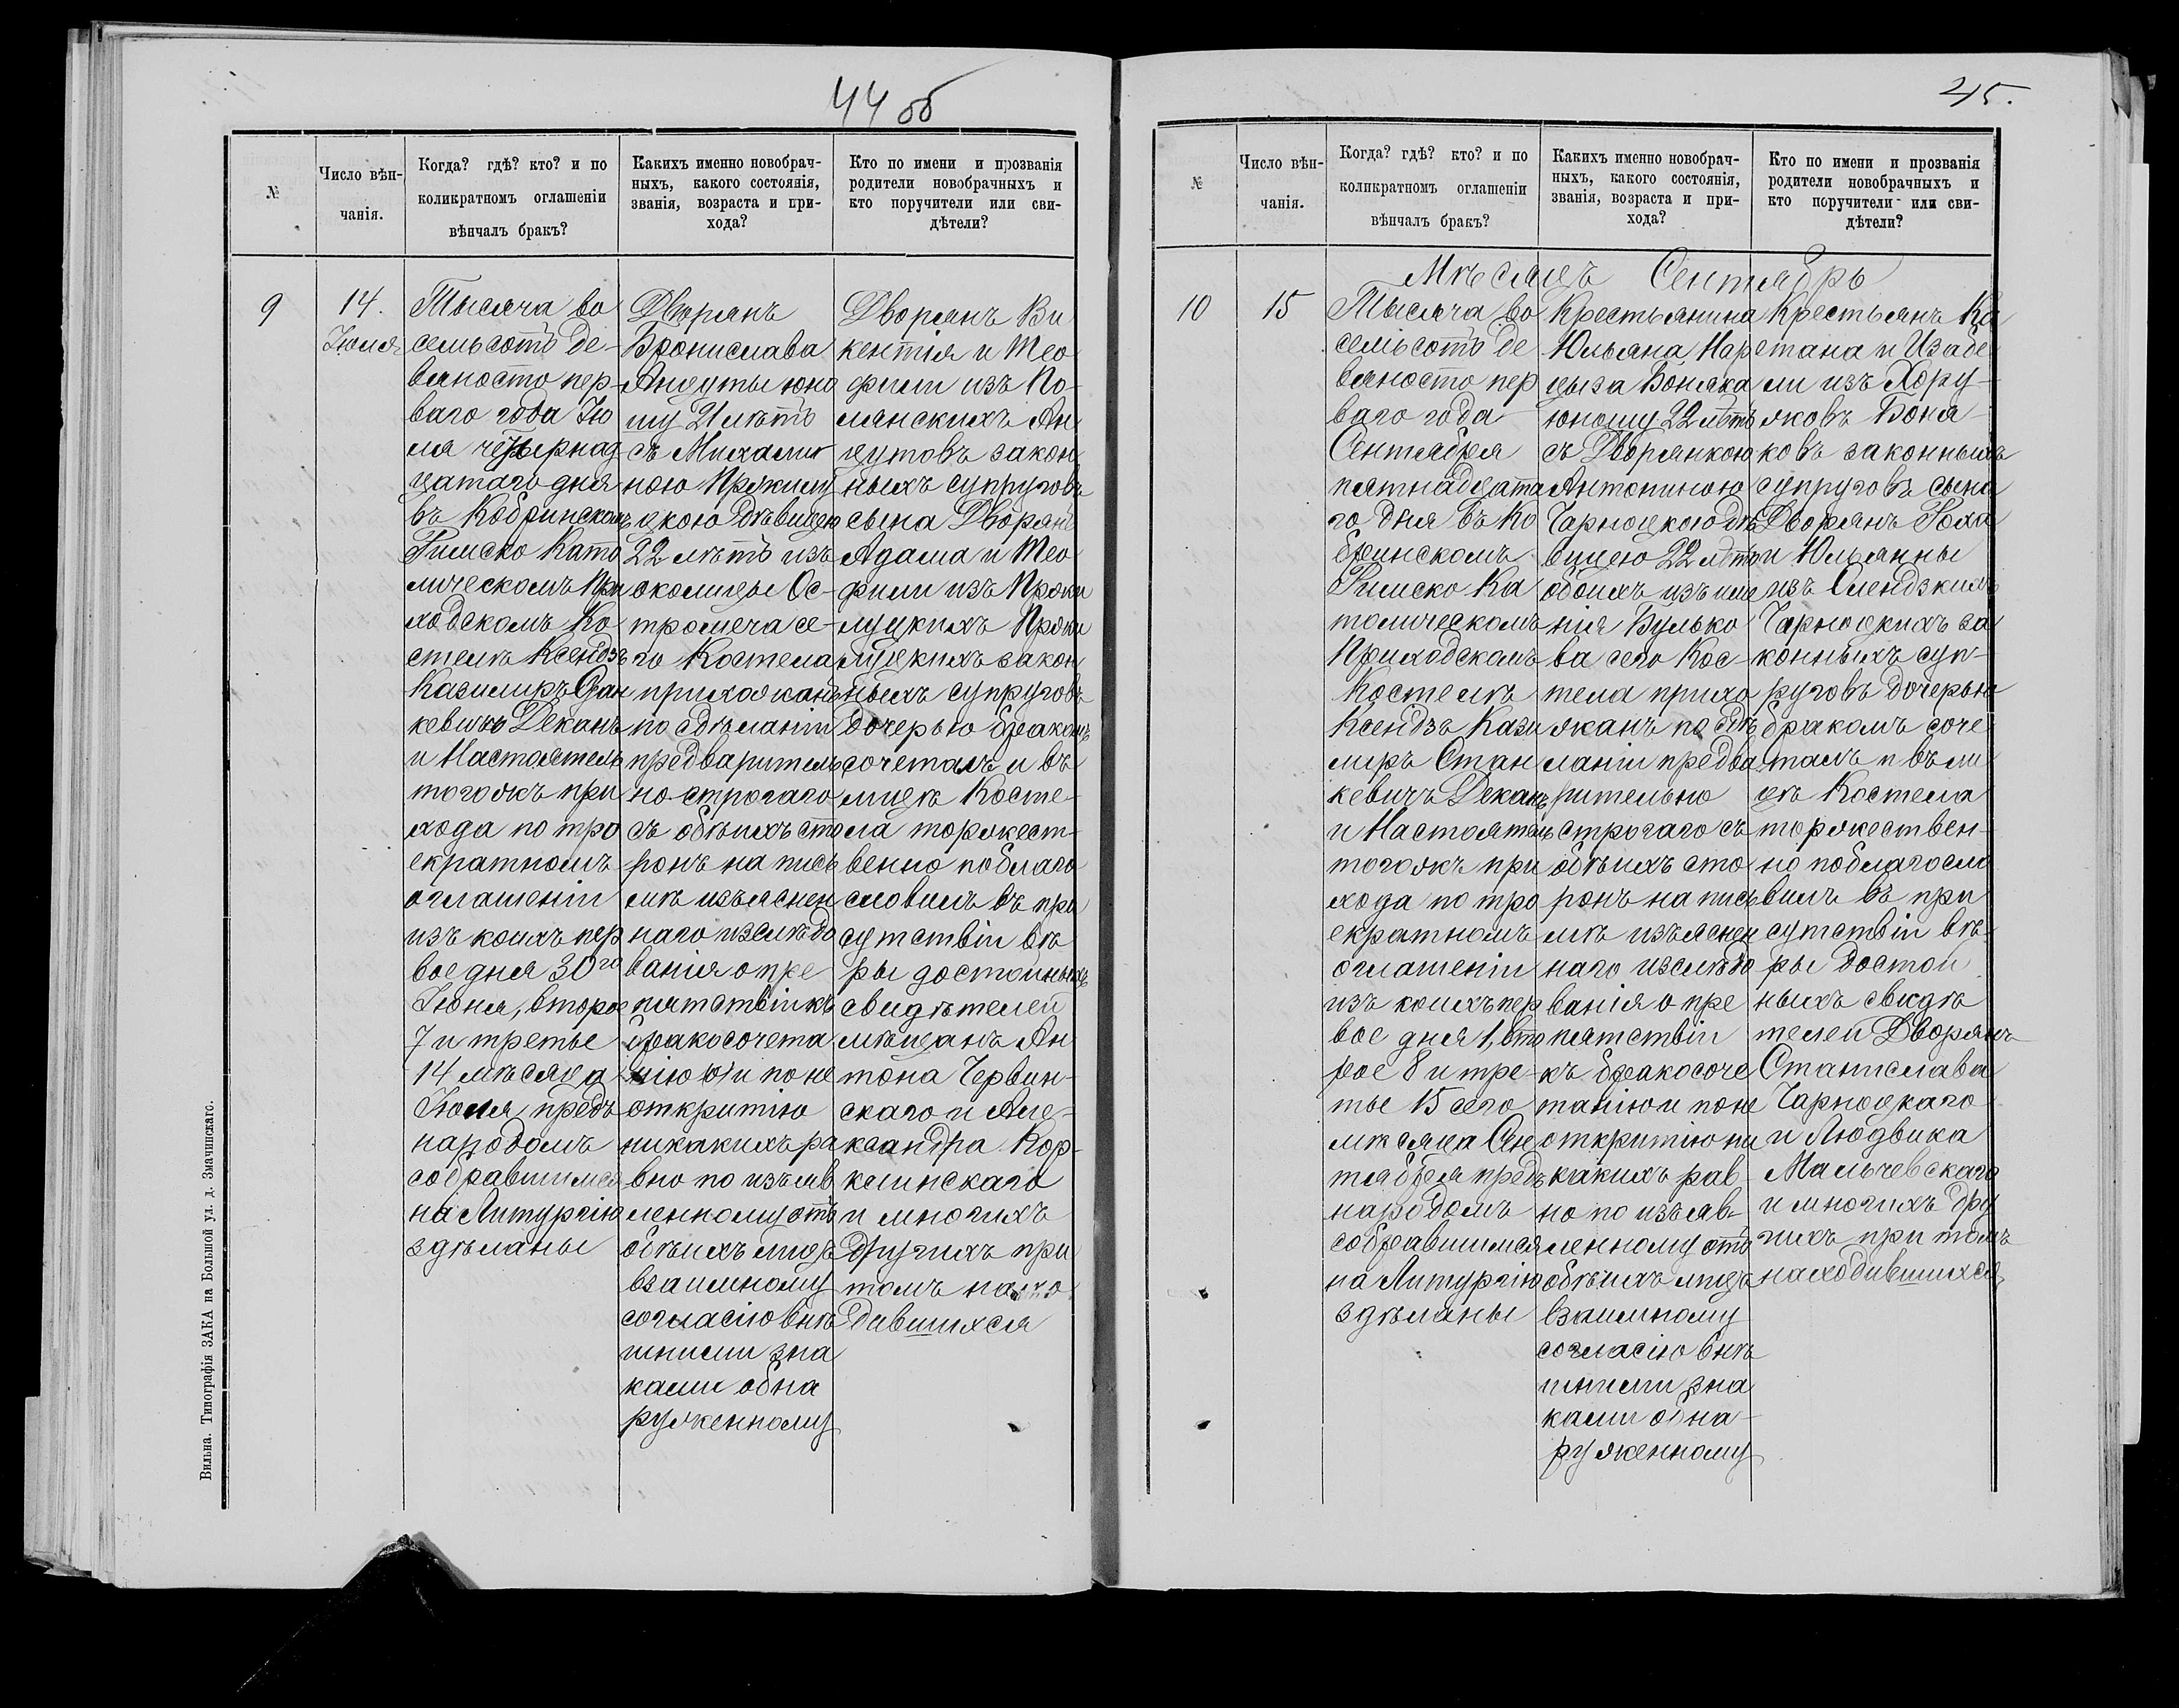 44 об
№
Число вѣн-
чанія.
Когда? гдѣ? кто? и по
коликратномъ оглашеніи
вѣнчалъ бракъ?
Какихъ именно новобрач-
ныхъ, какого состоянія,
званія, возраста и при-
хода?
Кто по имени и прозванія
родители новобрачныхъ и
кто поручители или сви-
дѣтели?
9
14.
Іюля
Тысяча во
семьсотъ де-
вяносто пер-
ваго года Ію
ля четырнад-
цатаго дня
въ Кобринскомъ
Римско Като
лическомъ При
ходскомъ Ко
стелѣ Ксендзъ
Казимиръ Стан
кевичъ Деканъ
и Настоятель
тогожъ при
хода по тро
екратномъ
оглашеніи
изъ коихъ пер
вое дня 30го
Іюня, второе
7 и третье
14 мѣсяца
Іюля предъ
народомъ
собравшимся
на Литургію
здѣланы
Дворянъ
Бронислава
Анцуты юно
шу 21 лѣтъ
съ Михали
ною Пржилу
цкою дѣвицею
22 лѣтъ изъ
околицы Ос-
тромеча се-
го Костела
прихожанъ
по сдѣланіи
предваритель
но строгаго
съ обѣихъ сто
ронъ на пись
мѣ изъяснен
наго изслѣдо
ванія о пре
пятствіи къ
бракосочета
нію и по не
открытію
никакихъ ра
вно по изъяв
ленному отъ
обѣихъ лицъ
взаимному
согласію внѣ
шними зна
ками обна
руженному
Дворянъ Ви
кентія и Тео
фили изъ По-
лянскихъ Ан
цутовъ закон
ныхъ супруговъ
сына Дворянъ
Адама и Тео
фили изъ Пржи
луцкихъ Пржи
луцкихъ закон
ныхъ супруговъ
дочерью бракомъ
сочеталъ и въ
лицѣ Косте-
ла торжест-
венно поблаго
словилъ въ при
сутствіи вѣ
ры достойныхъ
свидѣтелей
мѣщанъ Ан
тона Червин-
скаго и Але-
ксандра Кор-
и многихъ
другихъ при
томъ нахо
дившихся
Вильна. Типографія ЗАКА на Большой ул. д. Змачинскаго.
45.
№
Число вѣн-
чанія.
Когда? гдѣ? кто? и по
коликратномъ оглашеніи
вѣнчалъ бракъ?
Какихъ именно новобрач-
ныхъ, какого состоянія,
званія, возраста и при-
хода?
Кто по имени и прозванія
родители новобрачныхъ и
кто поручители или сви-
дѣтели?
Мѣсяцъ Сентябрь
10
15
Тысяча во
семьсотъ де
вяносто пер
ваго года
Сентября
пятнадцата
го дня въ Ко
бринскомъ
Римско Ка
толическомъ
Приходскомъ
Костелѣ
Ксендзъ Кази
миръ Стан
кевичъ Деканъ
и Настоятель
тогожъ при
хода по тро
екратномъ
оглашеніи
изъ коихъ пер
вое дня 1, вто
рое 8 и тре-
тье 15 сего
мѣсяца Сен
тября предъ
народомъ
собравшимся
на Литургію
здѣланы
Крестьянина
Юльяна Нар
цыза Боняка
юношу 22 лѣтъ
съ Дворянкою
Антониною
Чарноцкою дѣ
вицею 22 лѣтъ
обоихъ изъ име
нія Булько
ва сего Кос-
тела прихо
жанъ по сдѣ
ланіи предва
рительно
строгаго съ
обѣихъ сто
ронъ на пись
мѣ изъяснен
наго изслѣдо
ванія о пре
пятствіи
къ бракосоче
танію и по не
открытію ни
какихъ рав-
но по изъяв-
ленному отъ
обѣихъ лицъ
взаимному
согласію внѣ
шними зна
ками обна-
руженному
Крестьянъ Ка
етана и Изабе
ли изъ Хору-
жковъ Боня-
ковъ законныхъ
супруговъ сына
Дворянъ Роха
и Юльянны
изъ Олендзкихъ
Чарноцкихъ за
конныхъ суп-
руговъ дочерью
бракомъ соче
талъ и въ ли
цѣ Костела
торжествен-
но поблагосло
вилъ въ при
сутствіи вѣ-
ры достой
ныхъ свидѣ
телей Дворянъ
Станислава
Чарноцкаго
и Людвика
Мальчевскаго
и многихъ дру
гихъ при томъ
находившихся